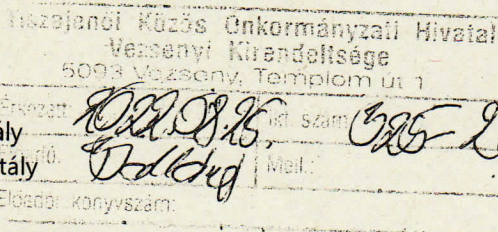 Tiszajenői Közös Önkormányzati Hivatal
Vezsenyi Kirendeltsége
5093 Vezseny, Templom út 1
Érkezett: 2022.08.25. Ikt. szám: 325-2
ály
tály Mell.:
Előadói könyvszám: